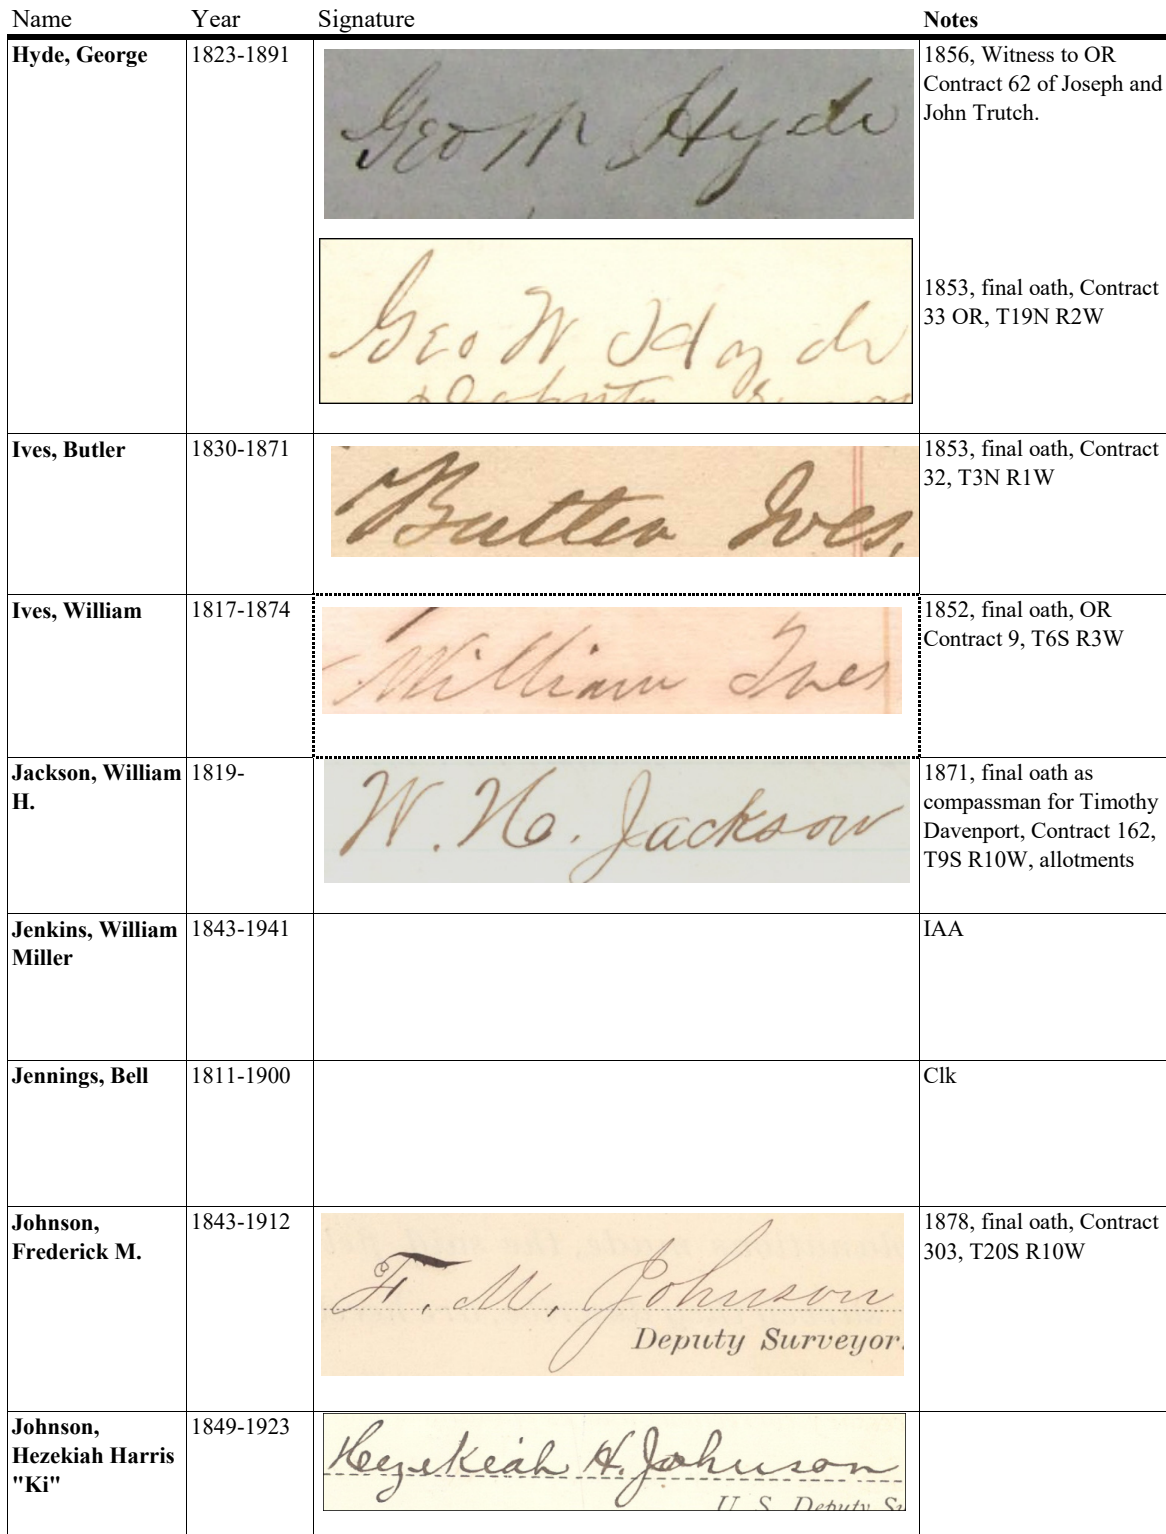 Name Year Signature Notes
Hyde, George 1823-1891 Geo W Hyde 1856, Witness to OR
Contract 62 of Joseph and
John Trutch.
Geo W Hyde 1853, final oath, Contract
33 OR, T19N R2W
Deputy
Ives, Butler 1830-1871 Butler Ives. 1853, final oath, Contract
32, T3N R1W
Ives, William 1817-1874 William Ives 1852, final oath, OR
Contract 9, T6S R3W
Jackson, William 1819- W. H. Jackson 1871, final oath as
H. compassman for Timothy
Davenport, Contract 162,
T9S R10W, allotments
Jenkins, William 1843-1941 IAA
Miller
Jennings, Bell 1811-1900 Clk
Johnson, 1843-1912 F. M. Johnson 1878, final oath, Contract
Frederick M. 303, T20S R10W
Deputy Surveyor.
Johnson, 1849-1923 Hezekiah H. Johnson
Hezekiah Harris
"Ki"
U. S. Deputy Su